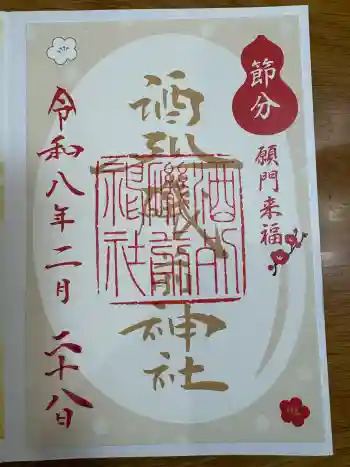 節分
願門来福
酒列磯前神社
酒列磯前神社
令和八年二月二十八日